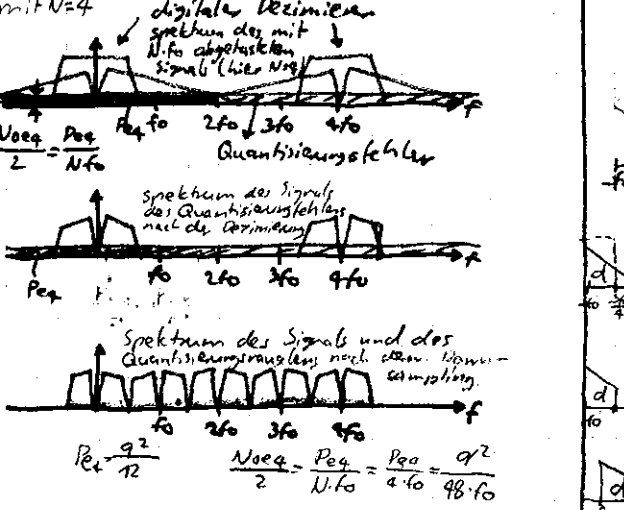 mit N=4
digitaler Dezimierer
spektrum des mit
N·fo abgetasteten
Signals (hier N=4)
Peq fo 2fo 3fo 4fo f
Noeq/2 = Peq/N·fo
Quantisierungsfehler
spektrum des Signals
des Quantisierungsfehlers
nach der Dezimierung
Peq fo 2fo 3fo 4fo f
Spektrum des Signals und des
Quantisierungsrauschens nach dem Down-
sampling
fo 2fo 3fo 4fo f
Peq = q²/12
Noeq/2 = Peq/N·fo = Peq/4·fo = q²/48·fo
d
fo
d
fo
d